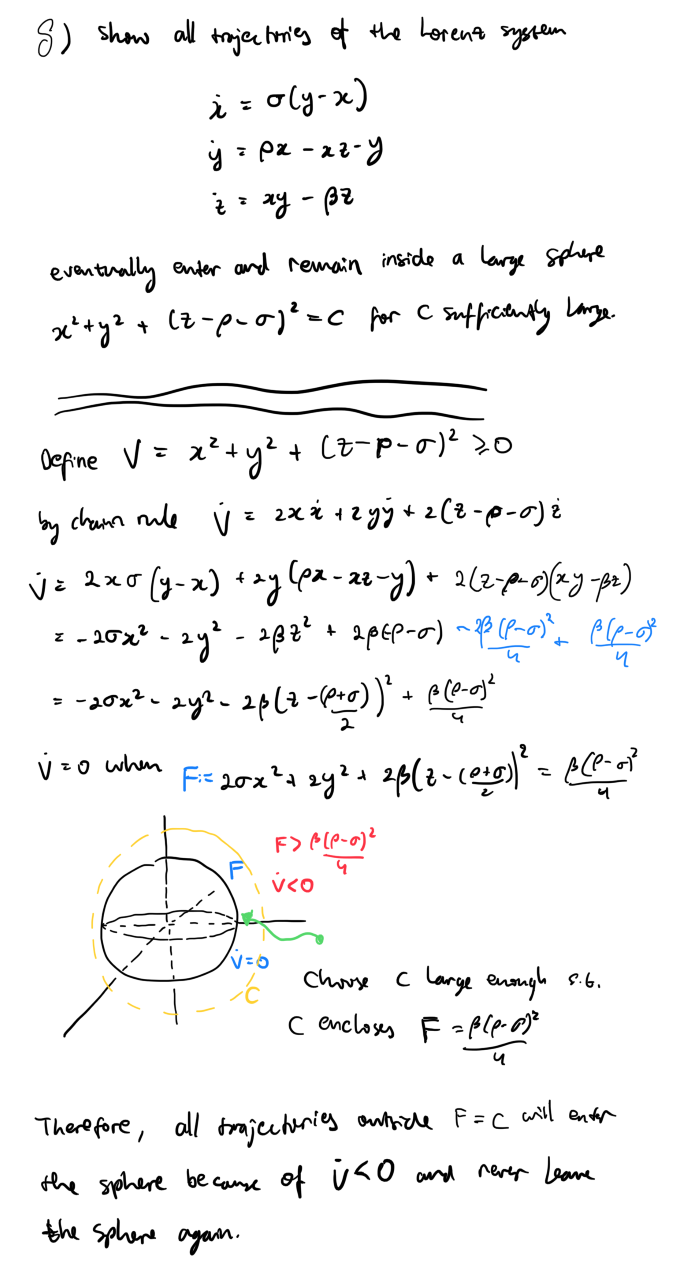 8) Show all trajectories of the Lorenz system
ẋ = σ(y-x)
ẏ = ρx - xz - y
ż = xy - βz
eventually enter and remain inside a large sphere
x² + y² + (z-ρ-σ)² = C for C sufficiently large.
Define V = x² + y² + (z-ρ-σ)² ≥ 0
by chain rule V̇ = 2xẋ + 2yẏ + 2(z-ρ-σ)ż
V̇ = 2xσ(y-x) + 2y(ρx - xz - y) + 2(z-ρ-σ)(xy-βz)
= -2σx² - 2y² - 2βz² + 2β(-ρ-σ) - 2β(ρ-σ)²/4 + β(ρ-σ)²/4
= -2σx² - 2y² - 2β(z - (ρ+σ)/2)² + β(ρ-σ)²/4
V̇ = 0 when F := 2σx² + 2y² + 2β(z - (ρ+σ)/2)² = β(ρ-σ)²/4
F > β(ρ-σ)²/4
F
V̇<0
V̇=0
C
Choose C large enough s.t.
C encloses F = β(ρ-σ)²/4
Therefore, all trajectories outside F = C will enter
the sphere because of V̇<0 and never leave
the sphere again.